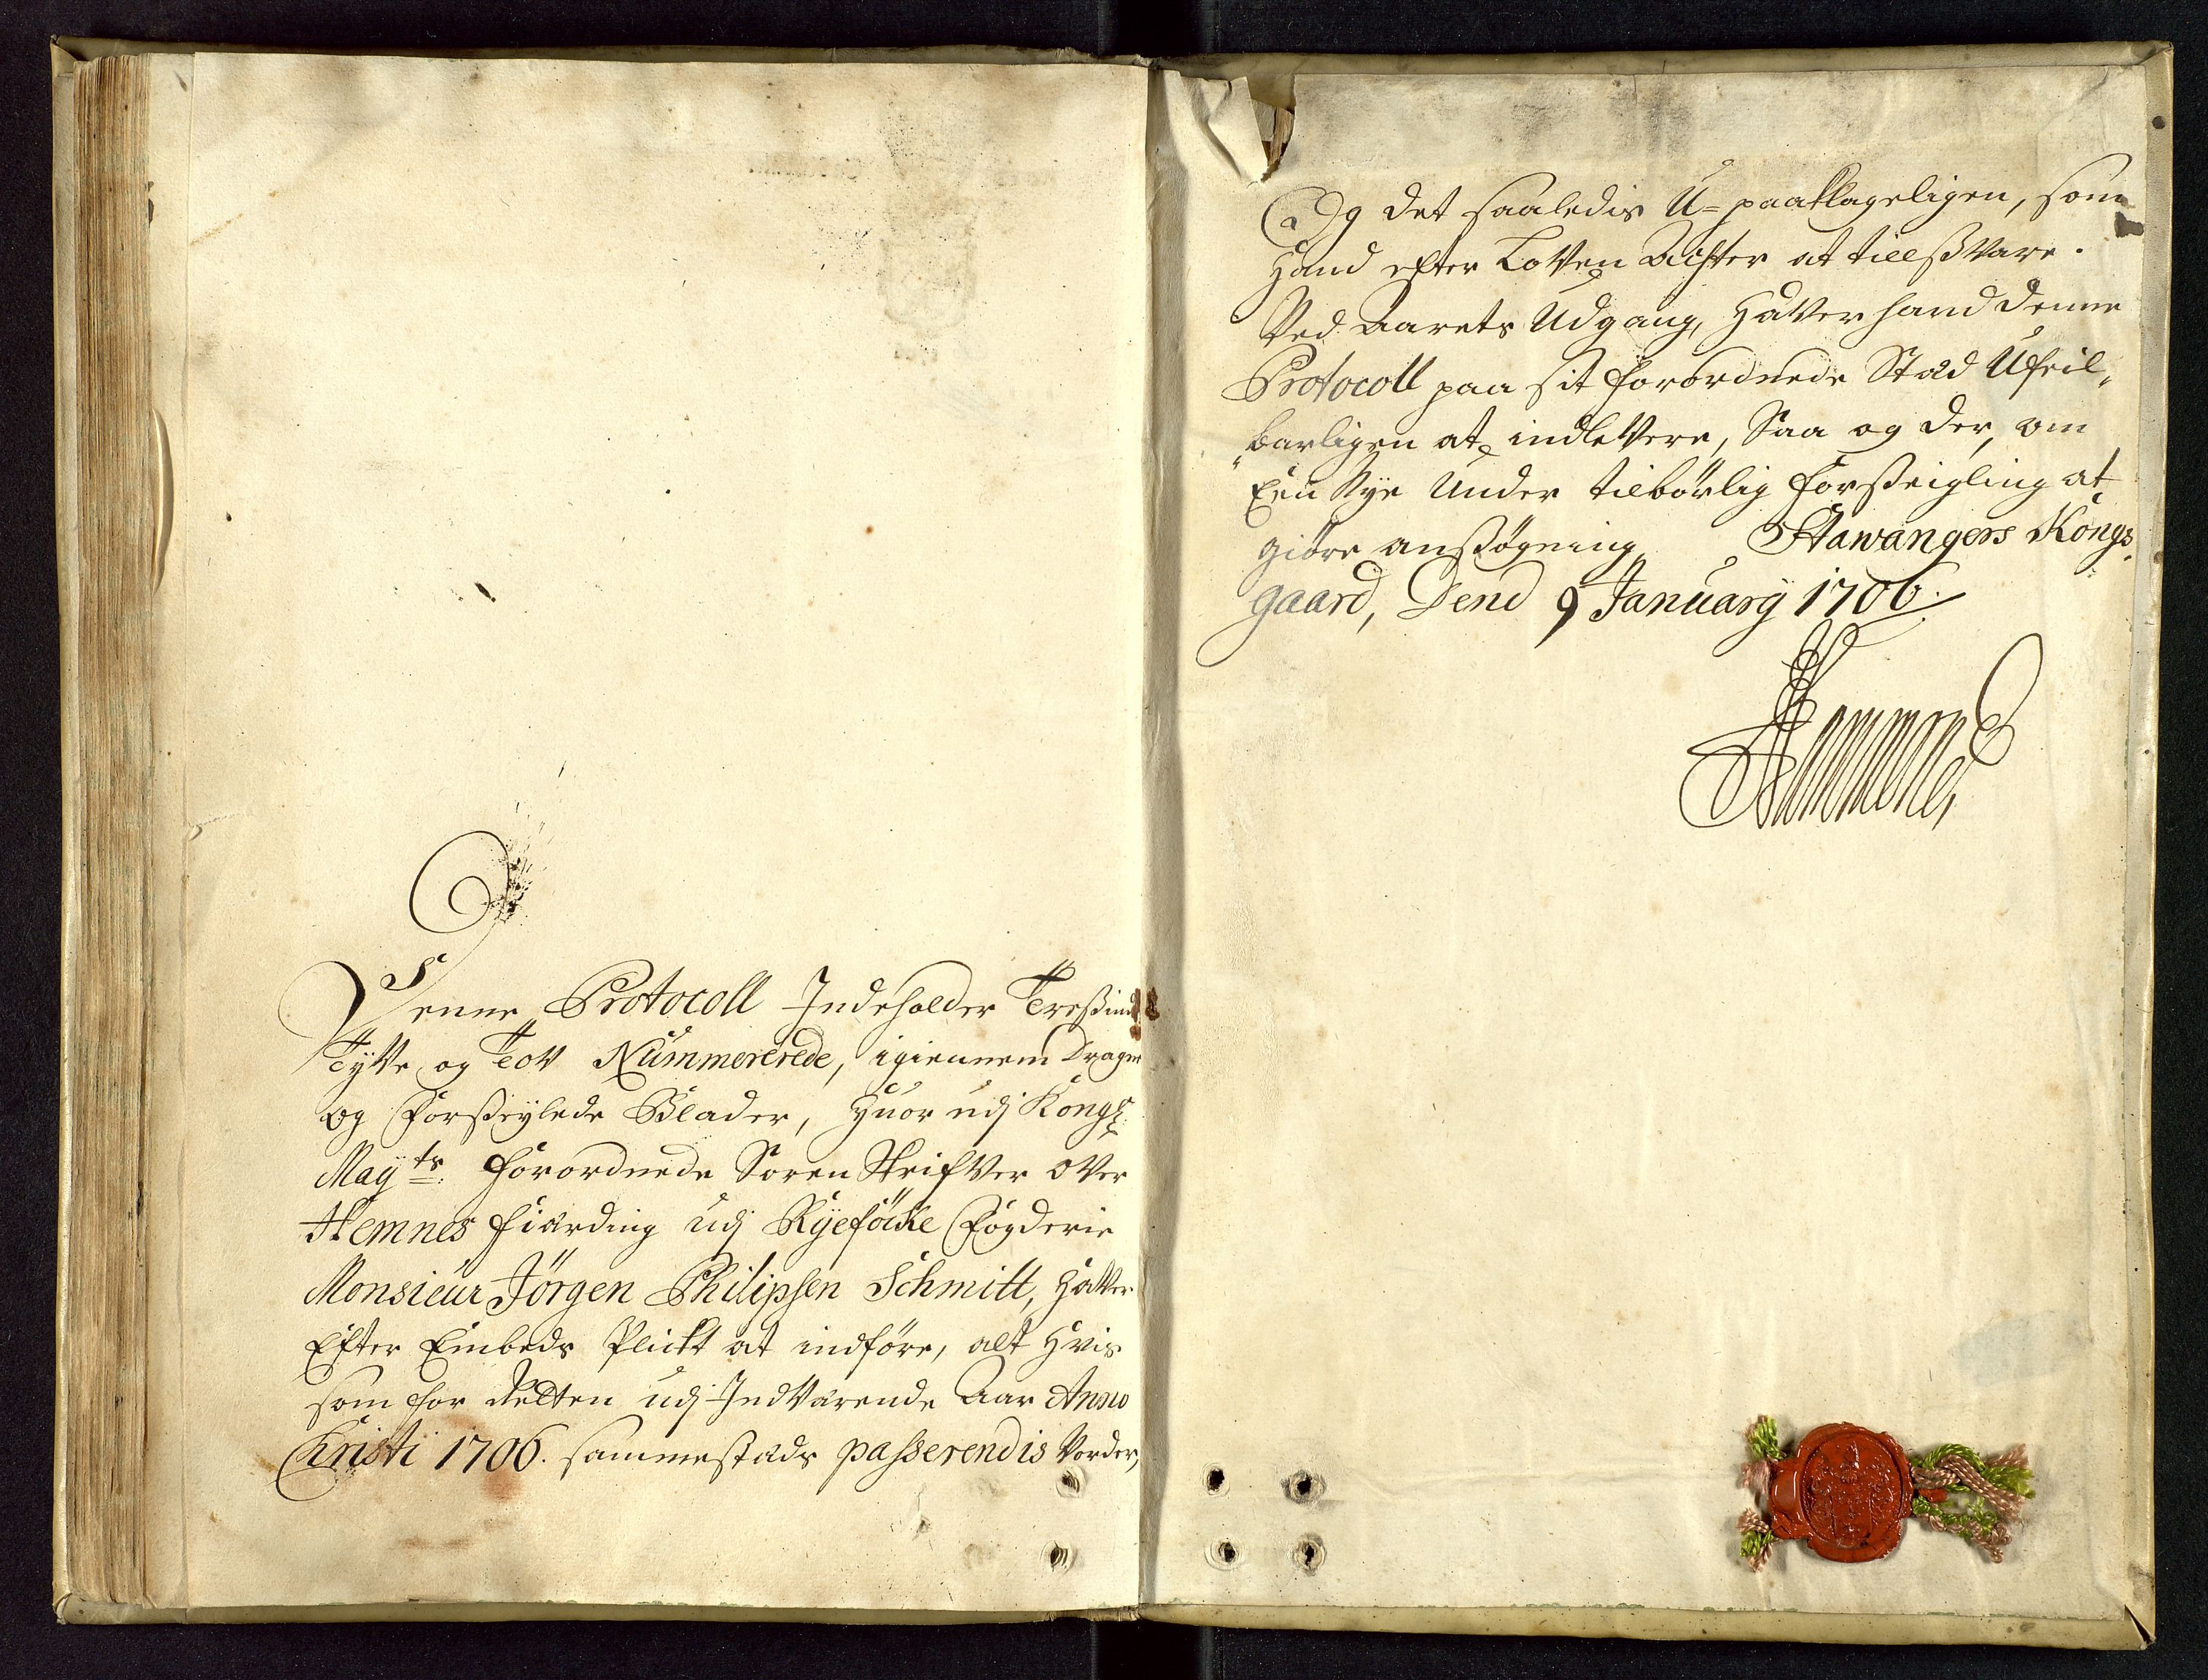 Denne Protocoll Indeholder Tresßind
Tÿtve og Tov Nummererede, igiennem Dragne
og Forßeÿlede Blader, Huor udj Kongl:
Maÿts: Forordnede Soren Skrifver over
Hemnes Fiærding udj Rÿefölke Fogderie
Monsieur Jörgen Philipsen Schmitt, Hafver
Efter Embeds Plickt at indföre, alt Hvis
som for Retten udj Indværende Aar Anno
Kristi 1706. sammestads passerendis Vorder,
Og det saaledis U=paaklageligen, som
Hand efter Loven Achter at tilßvare.
Ved Aarets Udgang, Hafver hand denne
Protocoll paa sit Forordnede Stæd Ufeil,,
,,barligen at indlevere, Saa og der, om
Een Nÿe Under tilbörlig Forßeigling at
giöre anßögning. Stawangers Kongs,,
gaard, Dend 9 Januarÿ 1706.